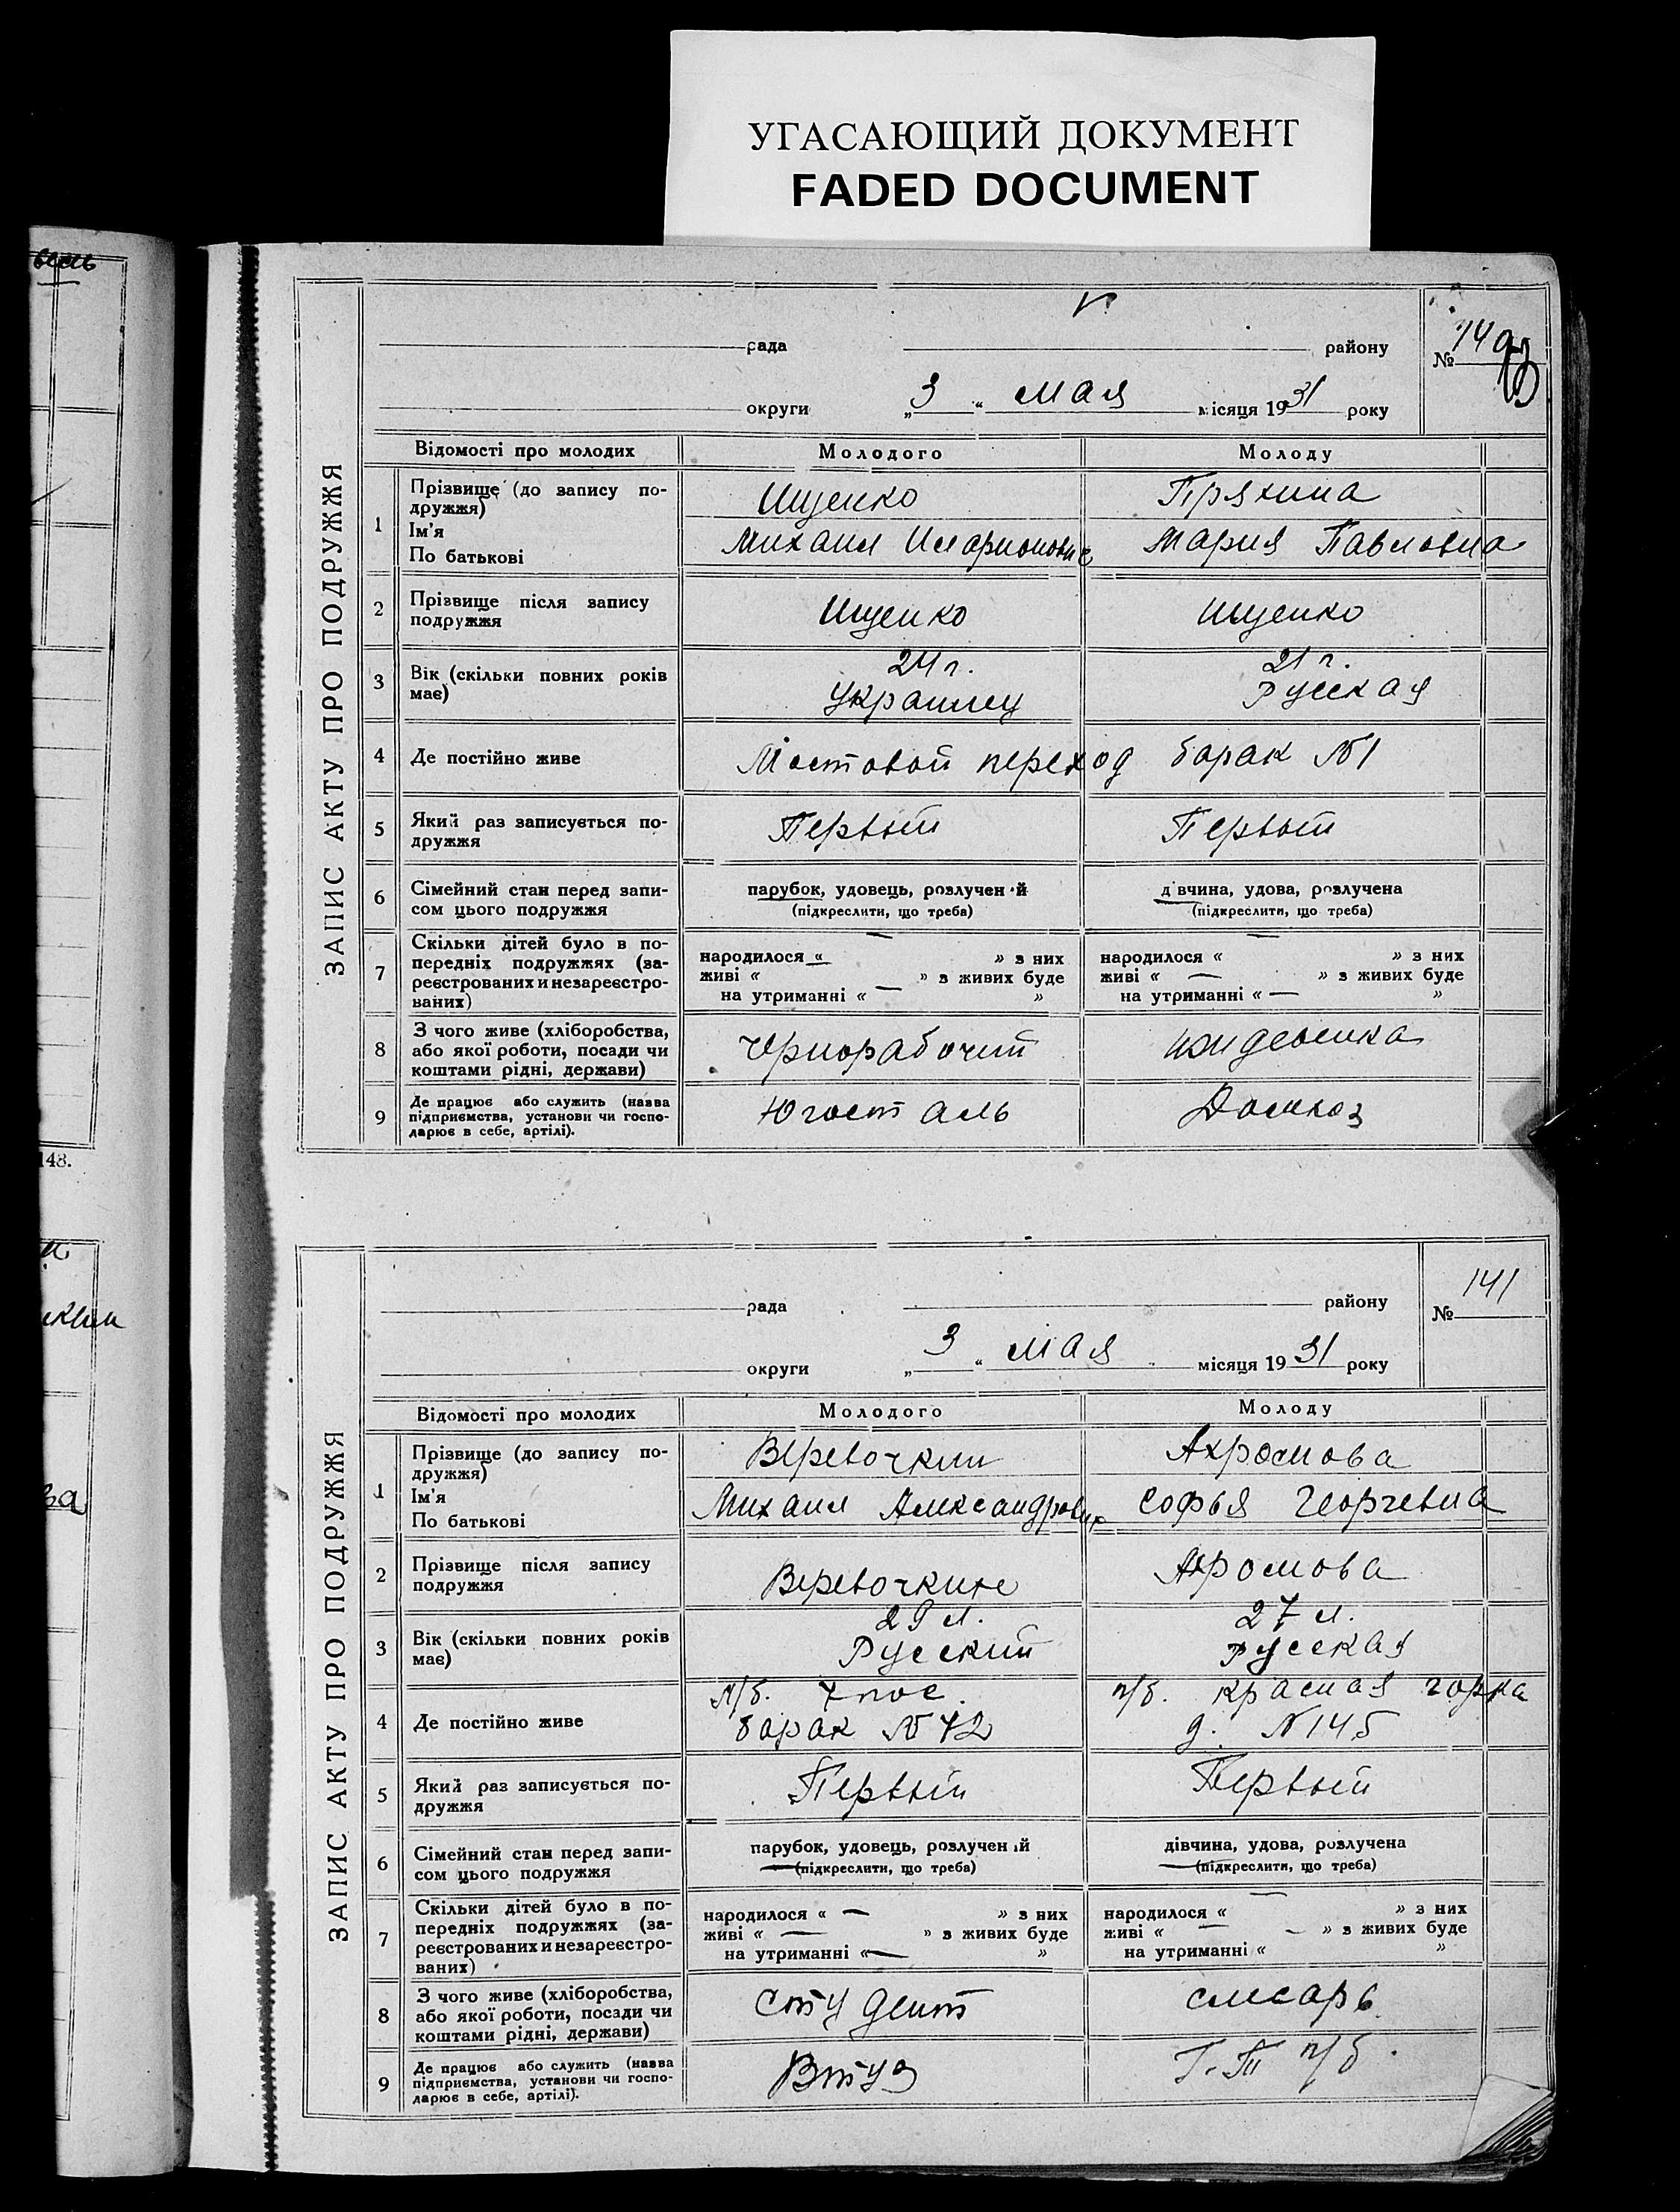 УГАСАЮЩИЙ ДОКУМЕНТ
FADED DOCUMENT
ЗАПИС АКТУ ПРО ПОДРУЖЖЯ
рада району № 140
округи „3“ мая місяця 1931 року
Відомості про молодих Молодого Молоду
1 Прізвище (до запису по-
дружжя) Ищенко Пряхина
Ім'я
По батькові Михаил Иларионович Мария Павловна
2 Прізвище після запису
подружжя Ищенко Ищенко
3 Вік (скільки повних років
має) 24 г. 21 г.
Украинец Русская
4 Де постійно живе Мостовой переход барак №1
5 Який раз записується по-
дружжя Первый Первый
6 Сімейний стан перед запи-
сом цього подружжя парубок, удовець, розлучений дівчина, удова, розлучена
(підкреслити, що треба) (підкреслити, що треба)
7 Скільки дітей було в по-
передніх подружжях (за-
реєстрованих и незареєстро-
ваних)
народилося « — » з них народилося « — » з них
живі « — » з живих буде живі « — » з живих буде
на утриманні « » на утриманні « — »
8 З чого живе (хліборобства,
або якої роботи, посади чи
коштами рідні, держави) Чернорабочий иждевенка
9 Де працює або служить (назва
підприємства, установи чи госпо-
дарює в себе, артілі). Югосталь Домхоз
148.
ЗАПИС АКТУ ПРО ПОДРУЖЖЯ
рада району № 141
округи „3“ мая місяця 1931 року
Відомості про молодих Молодого Молоду
1 Прізвище (до запису по-
дружжя) Веревочкин Ахромова
Ім'я
По батькові Михаил Александрович Софья Георгевна
2 Прізвище після запису
подружжя Веревочкине Ахромова
3 Вік (скільки повних років
має) 29 л. 27 л.
Русский Русская
4 Де постійно живе п/б. 7 пос. п/б. красная горка
барак №72 д. №145
5 Який раз записується по-
дружжя Первый Первый
6 Сімейний стан перед запи-
сом цього подружжя парубок, удовець, розлучений дівчина, удова, розлучена
(підкреслити, що треба) (підкреслити, що треба)
7 Скільки дітей було в по-
передніх подружжях (за-
реєстрованих и незареєстро-
ваних)
народилося « — » з них народилося « — » з них
живі « — » з живих буде живі « — » з живих буде
на утриманні « — » на утриманні « »
8 З чого живе (хліборобства,
або якої роботи, посади чи
коштами рідні, держави) Студент слесарь
9 Де працює або служить (назва
підприємства, установи чи госпо-
дарює в себе, артілі). Втуз п/б.